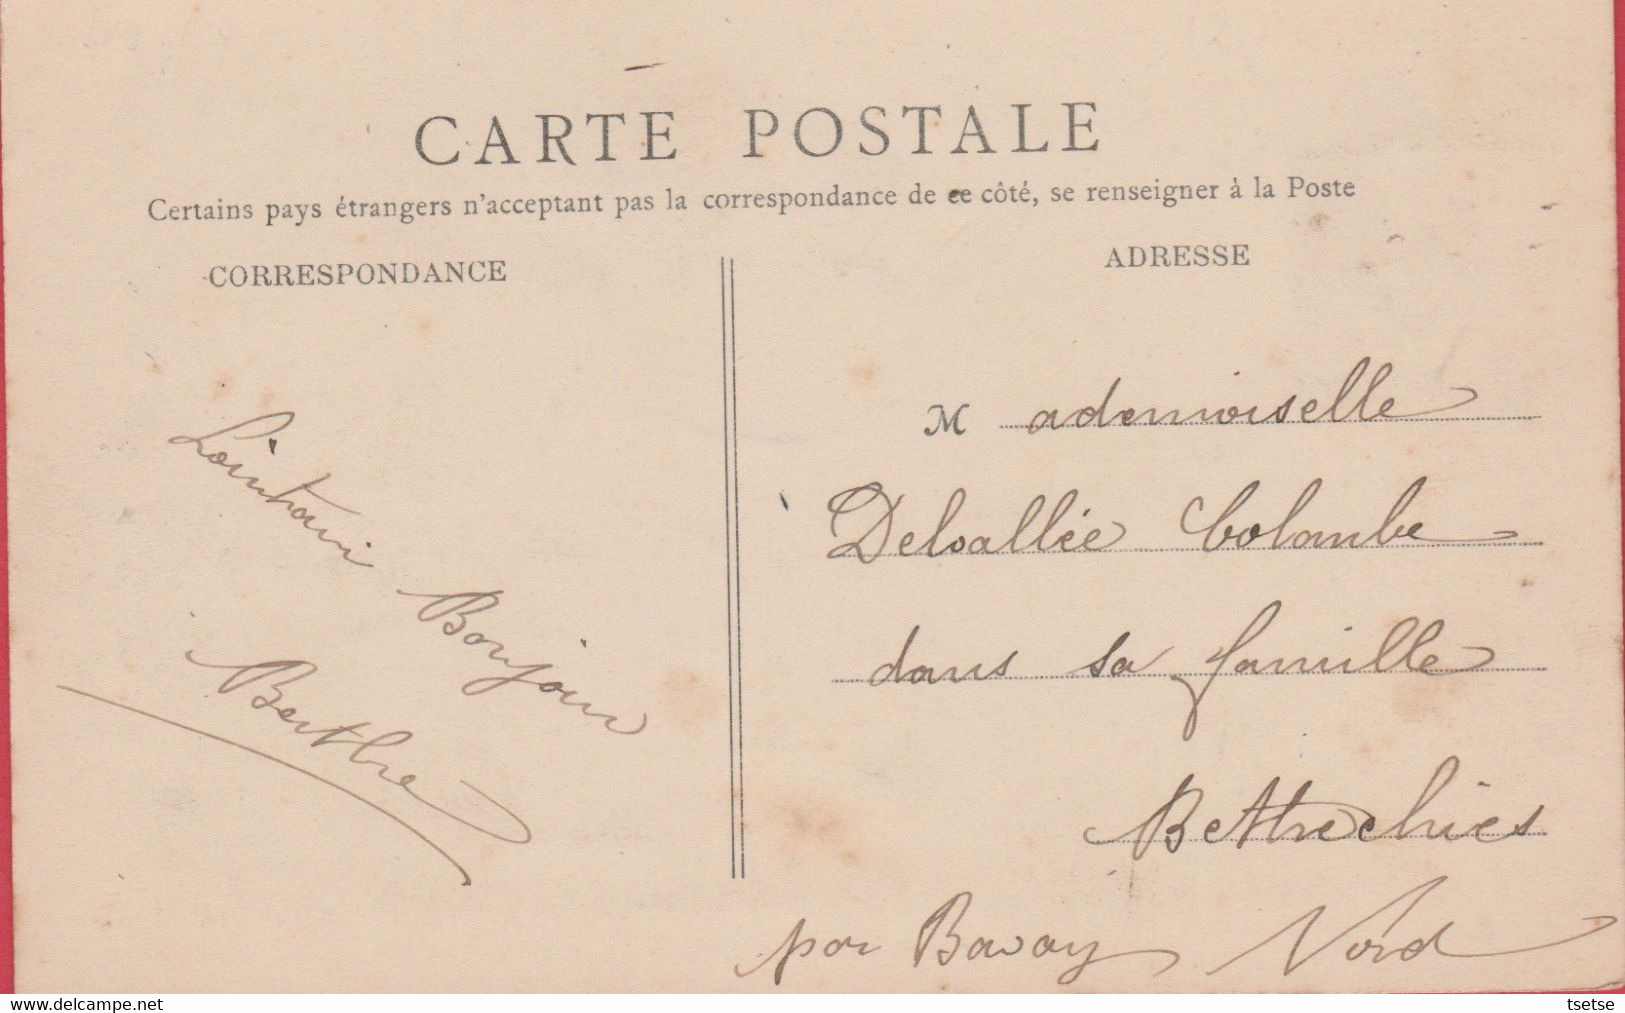 CARTE POSTALE
Certains pays étrangers n'acceptant pas la correspondance de ce côté, se renseigner à la Poste
CORRESPONDANCE
Lointain Bonjour
Berthe
ADRESSE
Mademoiselle
Delvallée Colombe
dans sa famille
Bettrechies
par Bavay Nord
www.delcampe.net
tsetse